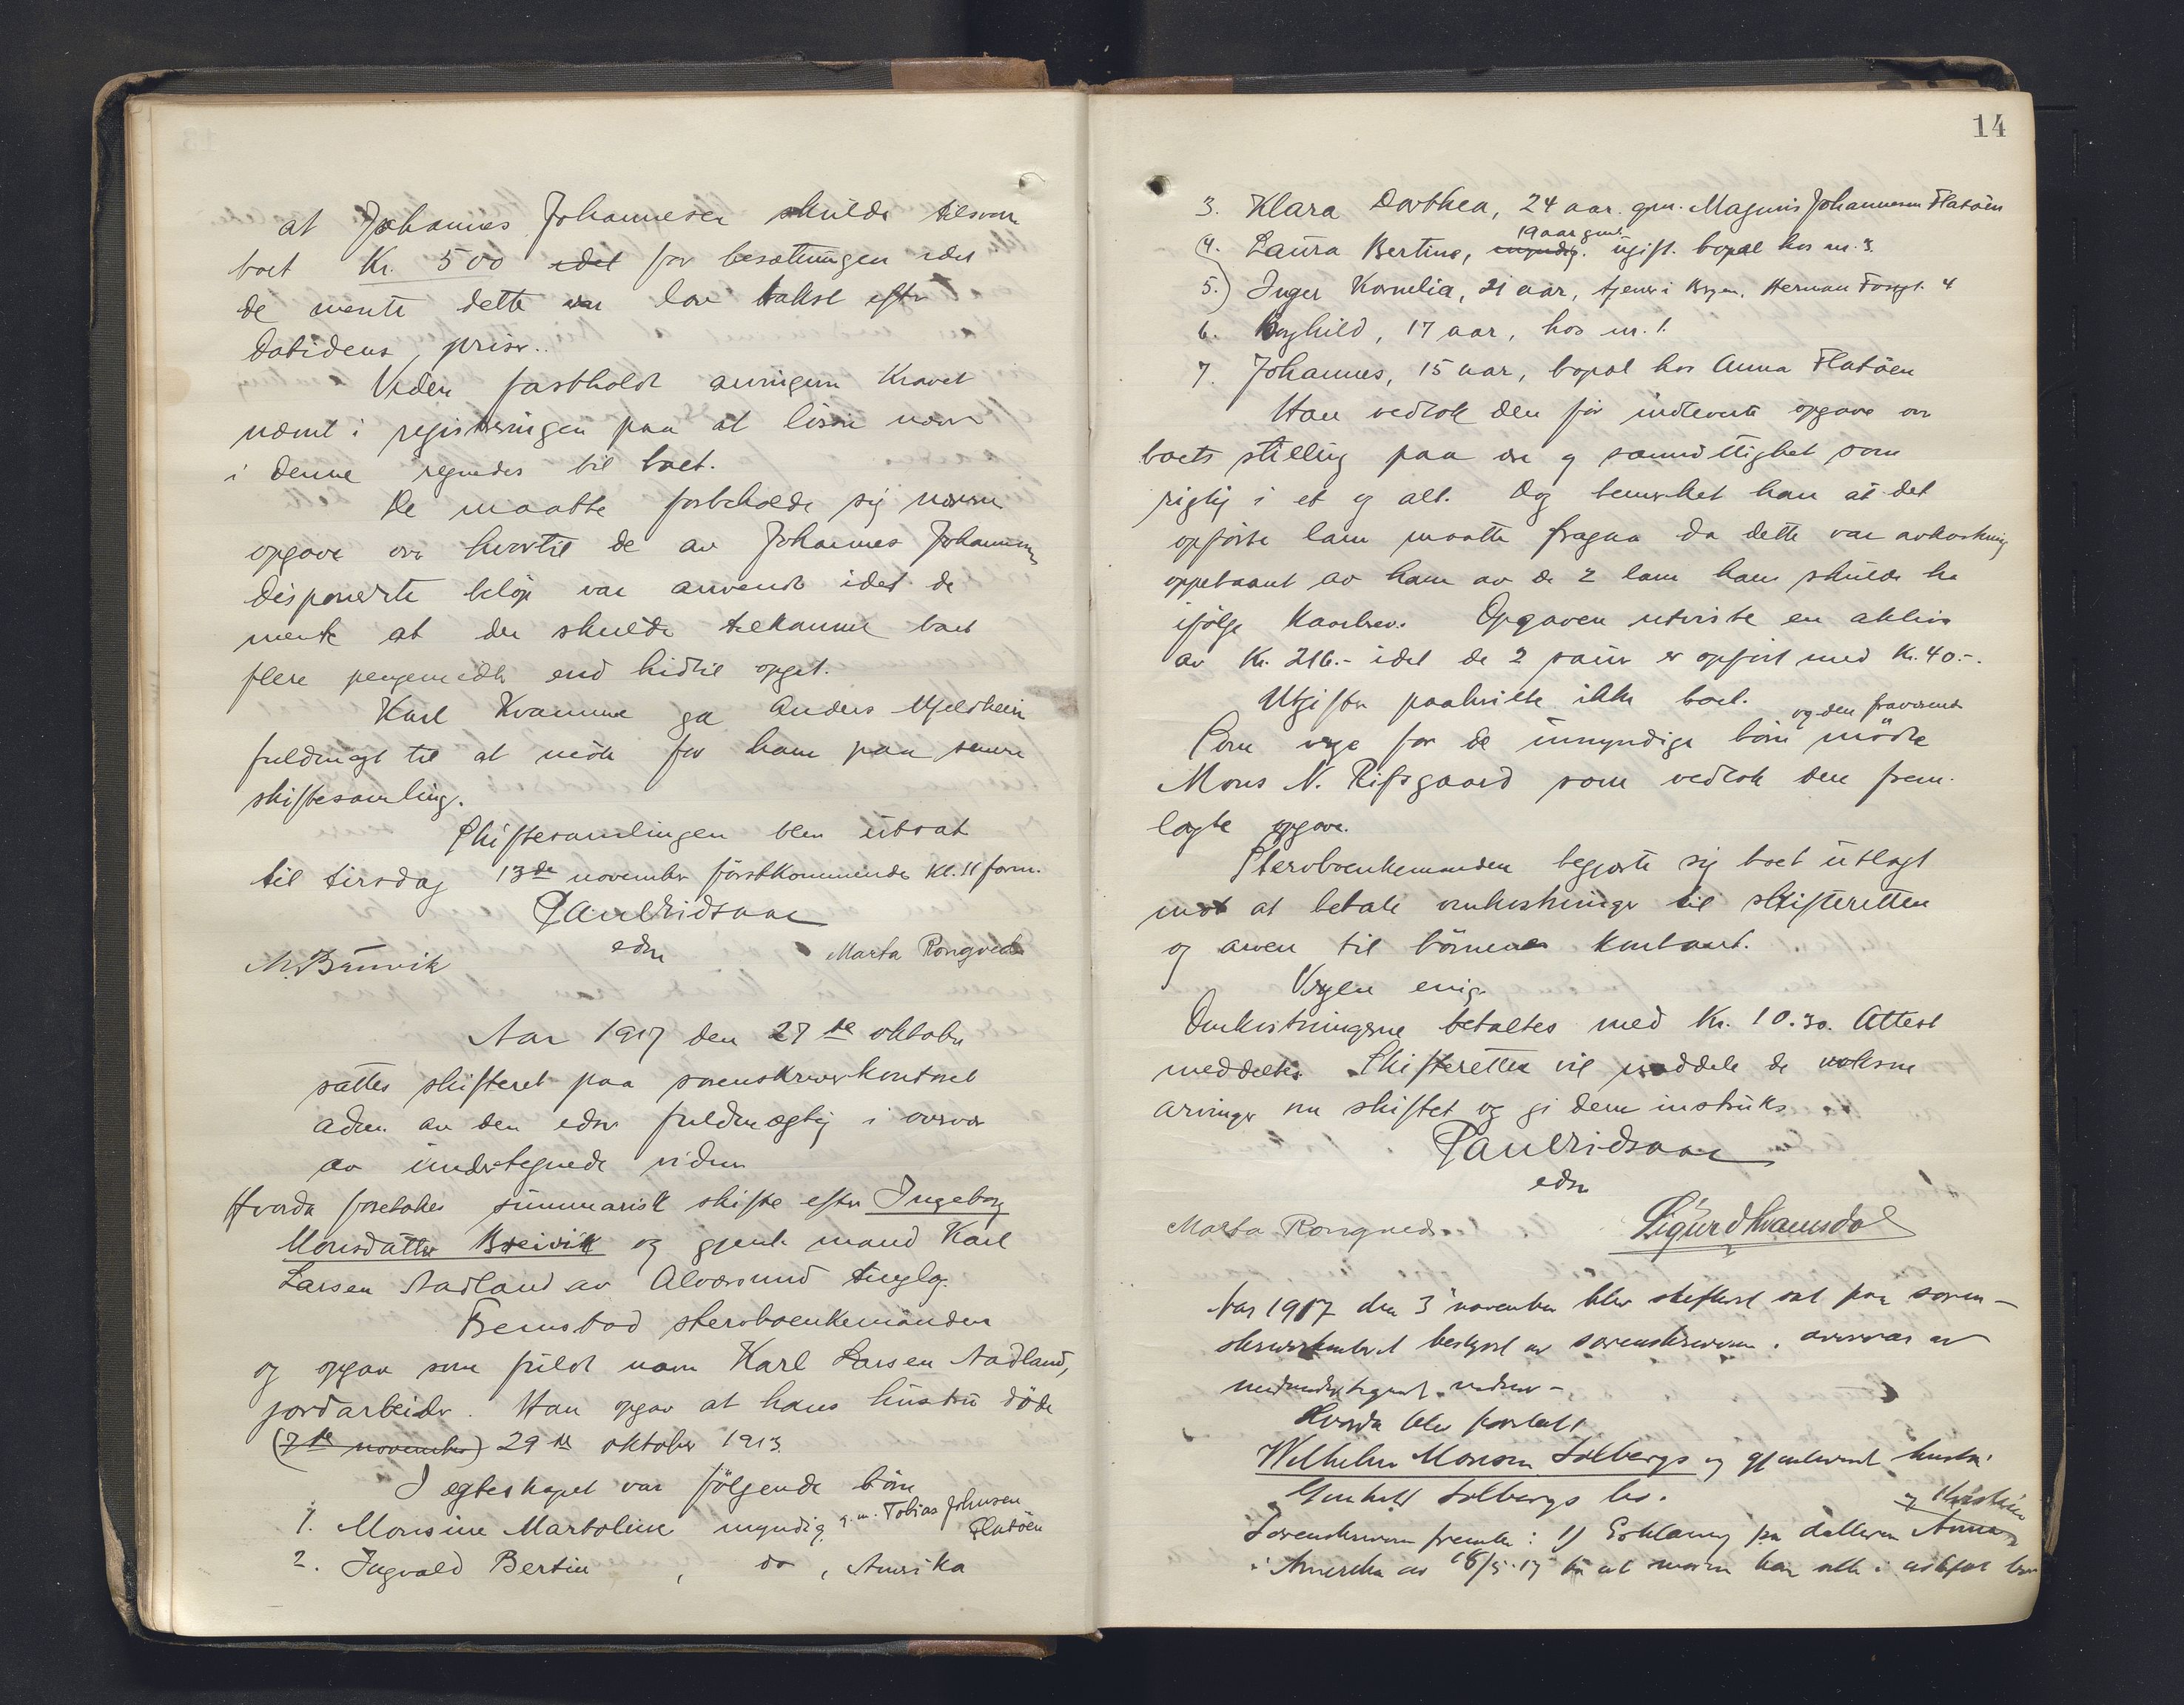 at Johannes Johannesen skulde tilsvare
boet Kr. 500 idet for besætningen idet
de mente dette var lav takst efter
datidens priser.
Videre fastholdt arvingerne kravet
nævnt i registreringen paa at løsøre nævnt
i denne regnedes til boet.
De maatte forbeholde sig nærmere
opgave over hvortil de av Johannes Johannesen
disponerte beløp var anvendt idet de
mente at der skulde tilkomme boet
flere pengemidler end hidtil opgit.
Karl Kvamme ga Anders Mjeldheim
fuldmagt til at møte for ham paa senere
skiftesamling.
Skiftesamlingen blev utsat
til tirsdag 13de november førstkommende kl. 11 form.
Paul Eidsaar
edsv
M. Brunvik Marta Rongved
Aar 1917 den 27de oktober
sattes skifteret paa sorenskriverkontoret
adm. av den edsv fuldmægtig i overvær
av undertegnede vidner
Hvorda foretokes summarisk skifte efter Ingeborg
Monsdatter Breivik og gjenl. mand Karl
Larsen Aadland av Alversund tinglag.
Fremstod stervboenkemanden
og opgav som fuldt navn Karl Larsen Aadland,
jordarbeider. Han opgav at hans hustru døde
(7de november) 29de oktober 1913.
I egteskapet var følgende børn
1. Monsine Martoline myndig g. m. Tobias Johnsen
Flatøen
2. Ingvald Bertin, do, Amerika
14
3. Klara Dorthea, 24 aar. gm. Magnus Johannesen Flatøen
19 aar gml.
4. Laura Bertine, myndig. ugift. bopæl hos nr. 3.
5. Inger Kornelia, 21 aar, tjener i Bergen. Herman Fossgt. 4
6. Borghild, 17 aar, hos nr. 1.
7. Johannes, 15 aar, bopæl hos Anna Flatøen
Han vedtok den før indleverte opgave over
boets stilling paa ære og samvittighet som
rigtig i et og alt. Dog bemerket han at det
opførte lam maatte fragaa da dette var avkastning
oppebaaret av ham av de 2 lam han skulde ha
ifølge kaarbrev. Opgaven utviste en aktiva
av Kr. 216.- idet de 2 sauer er opført med Kr. 40.-.
Utgifter paahvilte ikke boet.
og den fraværende
Som verge for de umyndige børn møtte
Mons N. Rifsgaard som vedtok den frem-
lagte opgave.
Stervboenkemanden begjærte sig boet utlagt
mot at betale omkostninger til skifteretten
og arven til børnene kontant.
Vergen enig.
Omkostningerne betaltes med Kr. 10.30. Attest
meddeltes. Skifteretten vil meddele de voksne
arvinger om skiftet og gi dem instruks.
Paul Eidsaar
edsv
Marta Rongved Sigurd Kvamsdal
Aar 1917 den 3 november blev skifteret sat paa soren-
skriverkontoret bestyret av sorenskriveren i overvær av
nedundertegnede vidner -
Hvorda blev foretatt
Wilhelm Monsen Solbergs og gjenlevende hustru
Solbergs bo.
og Kristine
Sorenskriveren fremla: 1) Erklæring fra datteren Anna
i Amerika av 18/5.17 at moren kan sitte i uskiftet bo